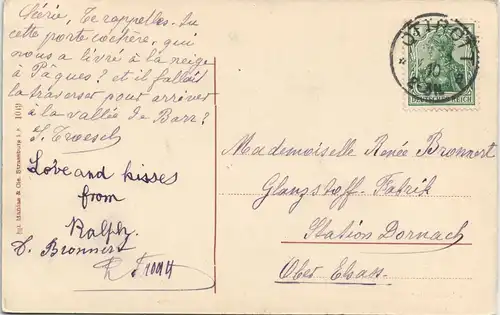 Chérie, Te rappelles-tu
cette porte cochère, qui
nous a livré à la neige
à Pâques? et il fallait
la traverser pour arriver
à la vallée de Barr?
J. Troesch
Love and kisses
from
Ralph.
D. Bronnert
OTTROTT
10
DEUTSCHES REICH
Mademoiselle Renée Bronnert
Glanzstoff-Fabrik
Station Dornach
Ober Elsass
1910